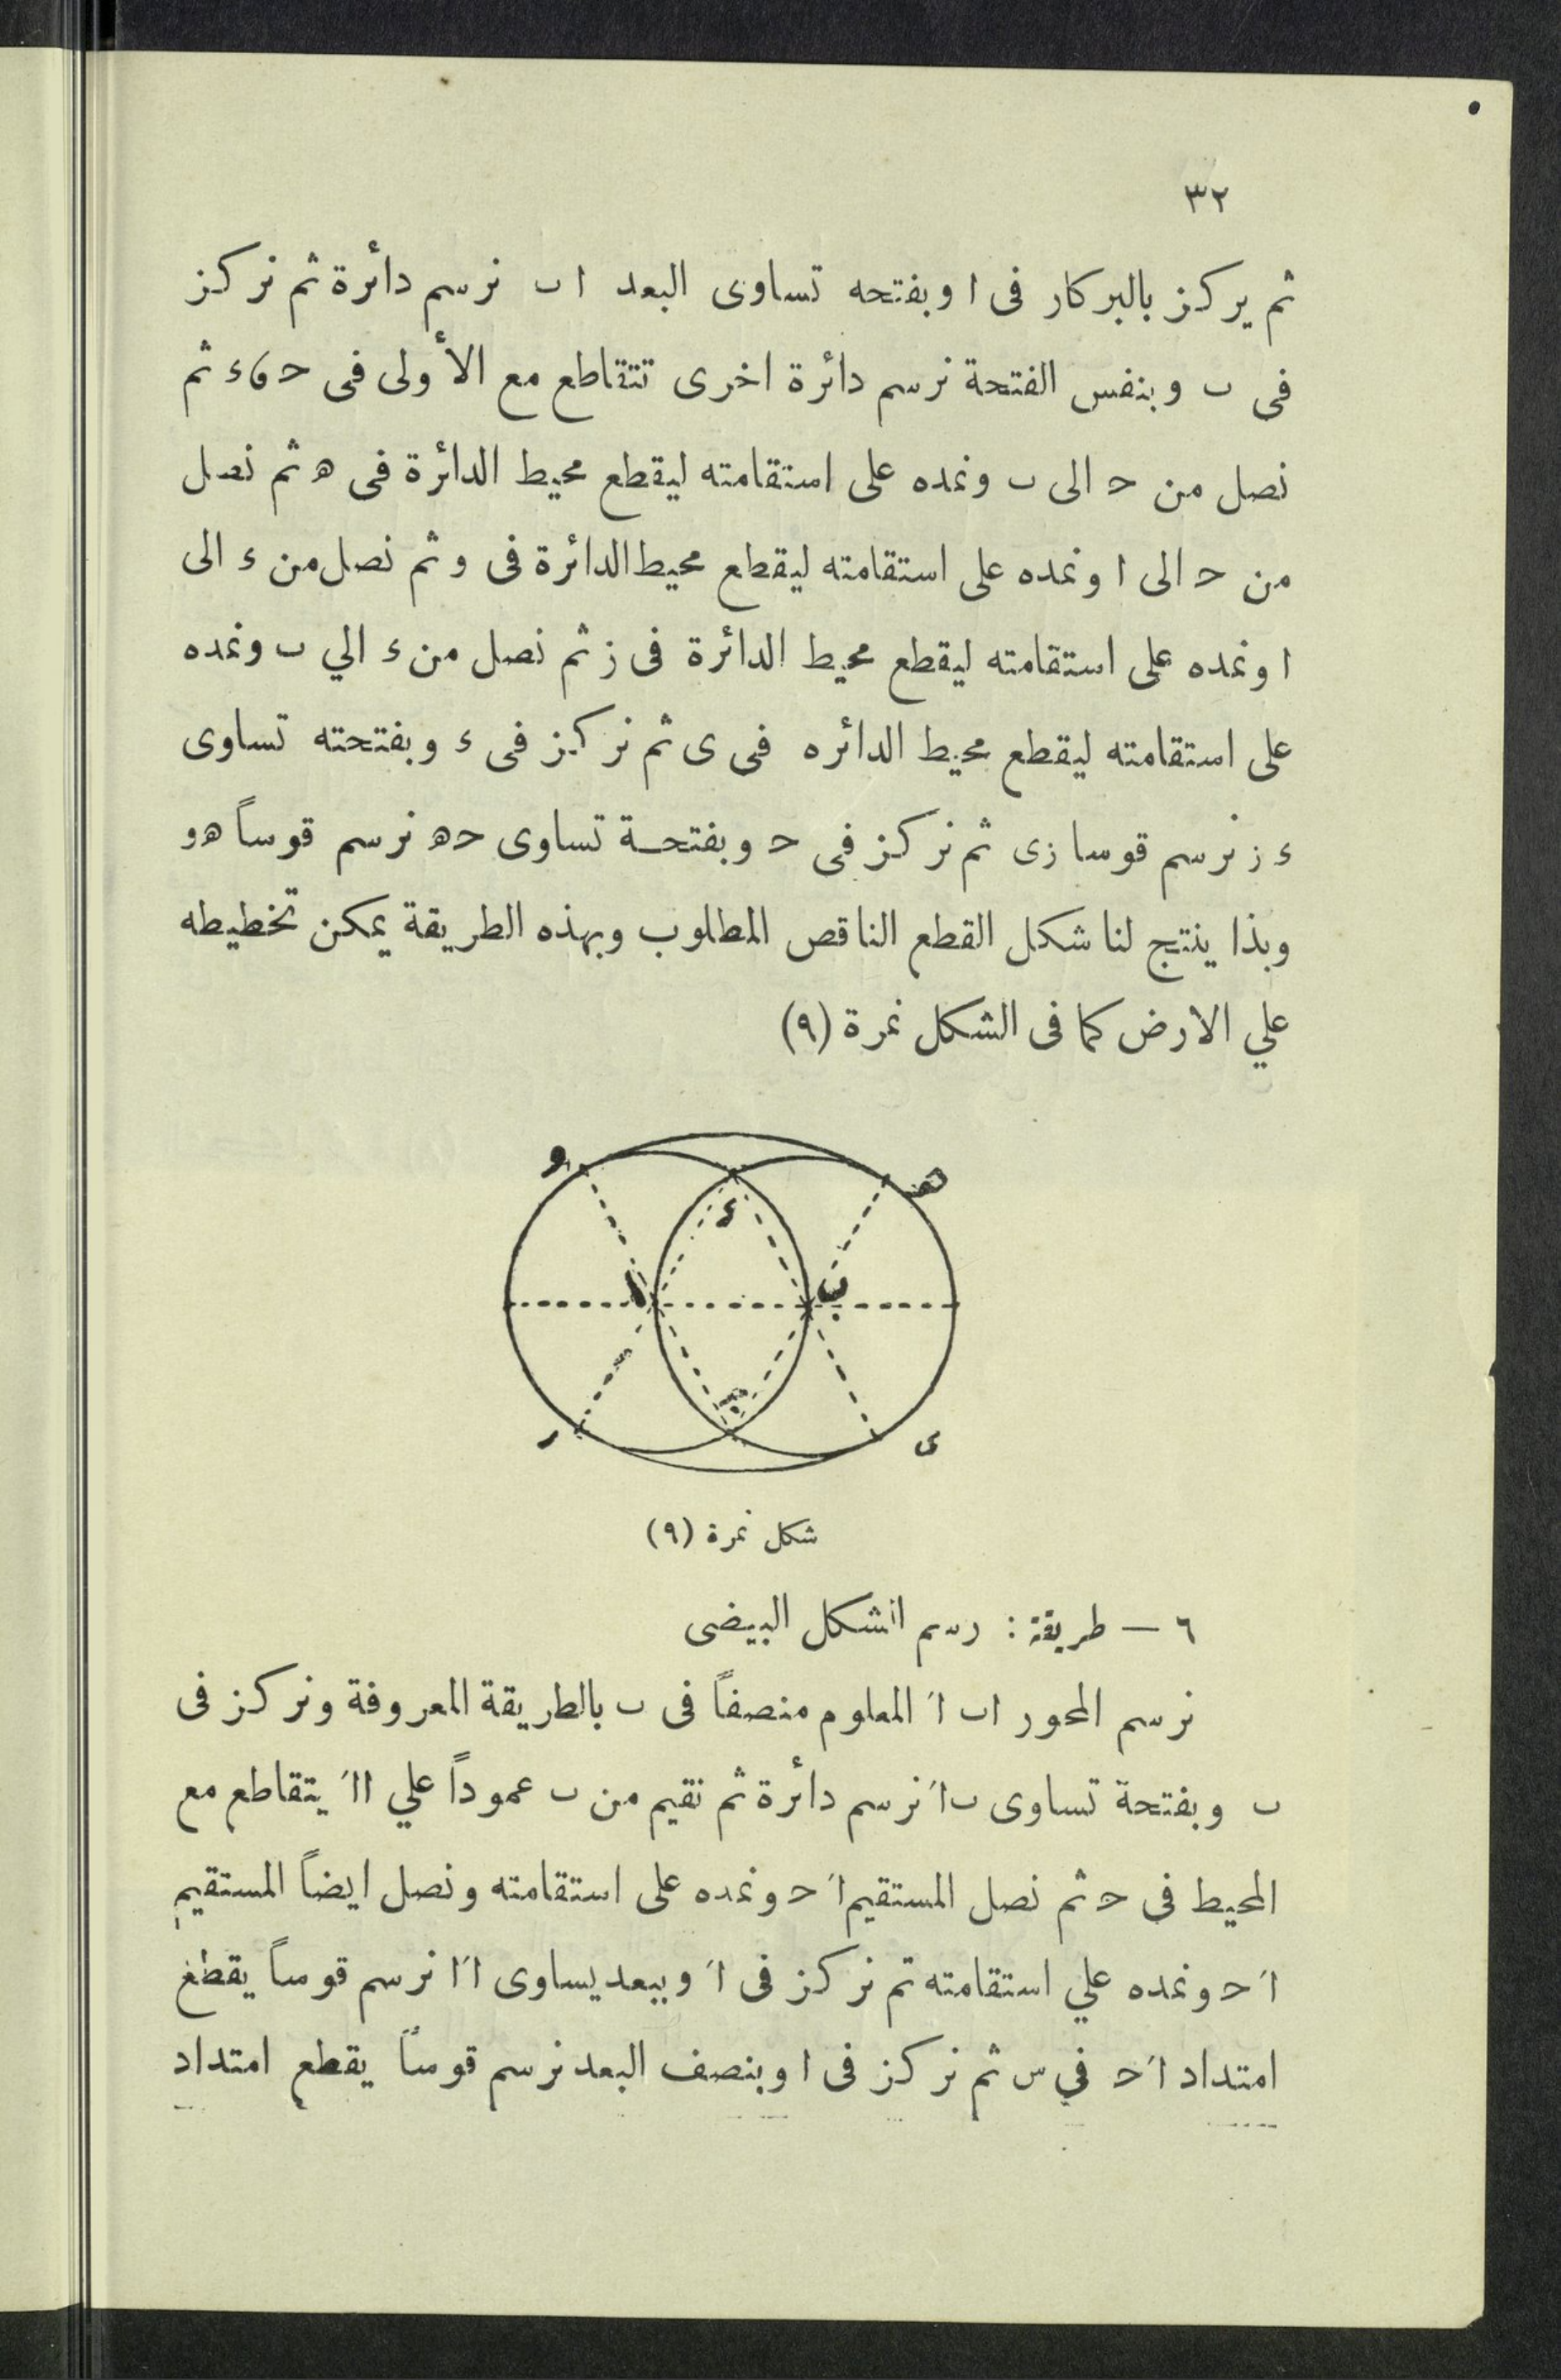 ٣٢
ثم يركز بالبركار فى ا وبفتحه تساوى البعد ا ب نرسم دائرة ثم نركز
فى ب وبنفس الفتحة نرسم دائرة اخرى تتقاطع مع الأولى فى حـ ، ء ثم
نصل من حـ الى ب ونمده على استقامته ليقطع محيط الدائرة فى هـ ثم نصل
من حـ الى ا ونمده على استقامته ليقطع محيط الدائرة فى و ثم نصل من ء الى
ا ونمده على استقامته ليقطع محيط الدائرة فى ز ثم نصل من ء الي ب ونمده
على استقامته ليقطع محيط الدائره فى ى ثم نركز فى ء وبفتحته تساوى
ء ز نرسم قوسا زى ثم نركز فى حـ وبفتحة تساوى حـ هـ نرسم قوساً هـ و
وبذا ينتج لنا شكل القطع الناقص المطلوب وبهذه الطريقة يمكن تخطيطه
علي الارض كما فى الشكل نمرة (٩)
و هـ
ء
ا ب
حـ
ر ى
شكل نمرة (٩)
٦ — طريقة : رسم الشكل البيضى
نرسم المحور اب اَ المعلوم منصفاً فى ب بالطريقة المعروفة ونركز فى
ب وبفتحة تساوى ب اَ نرسم دائرة ثم نقيم من ب عموداً علي ااَ يتقاطع مع
المحيط فى حـ ثم نصل المستقيم اَ حـ ونمده على استقامته ونصل ايضاً المستقيم
اَ حـ ونمده علي استقامته تم نركز فى اَ وببعد يساوى اَ ا نرسم قوساً يقطع
امتداد اَ حـ في س ثم نركز فى ا وبنصف البعد نرسم قوساً يقطع امتداد